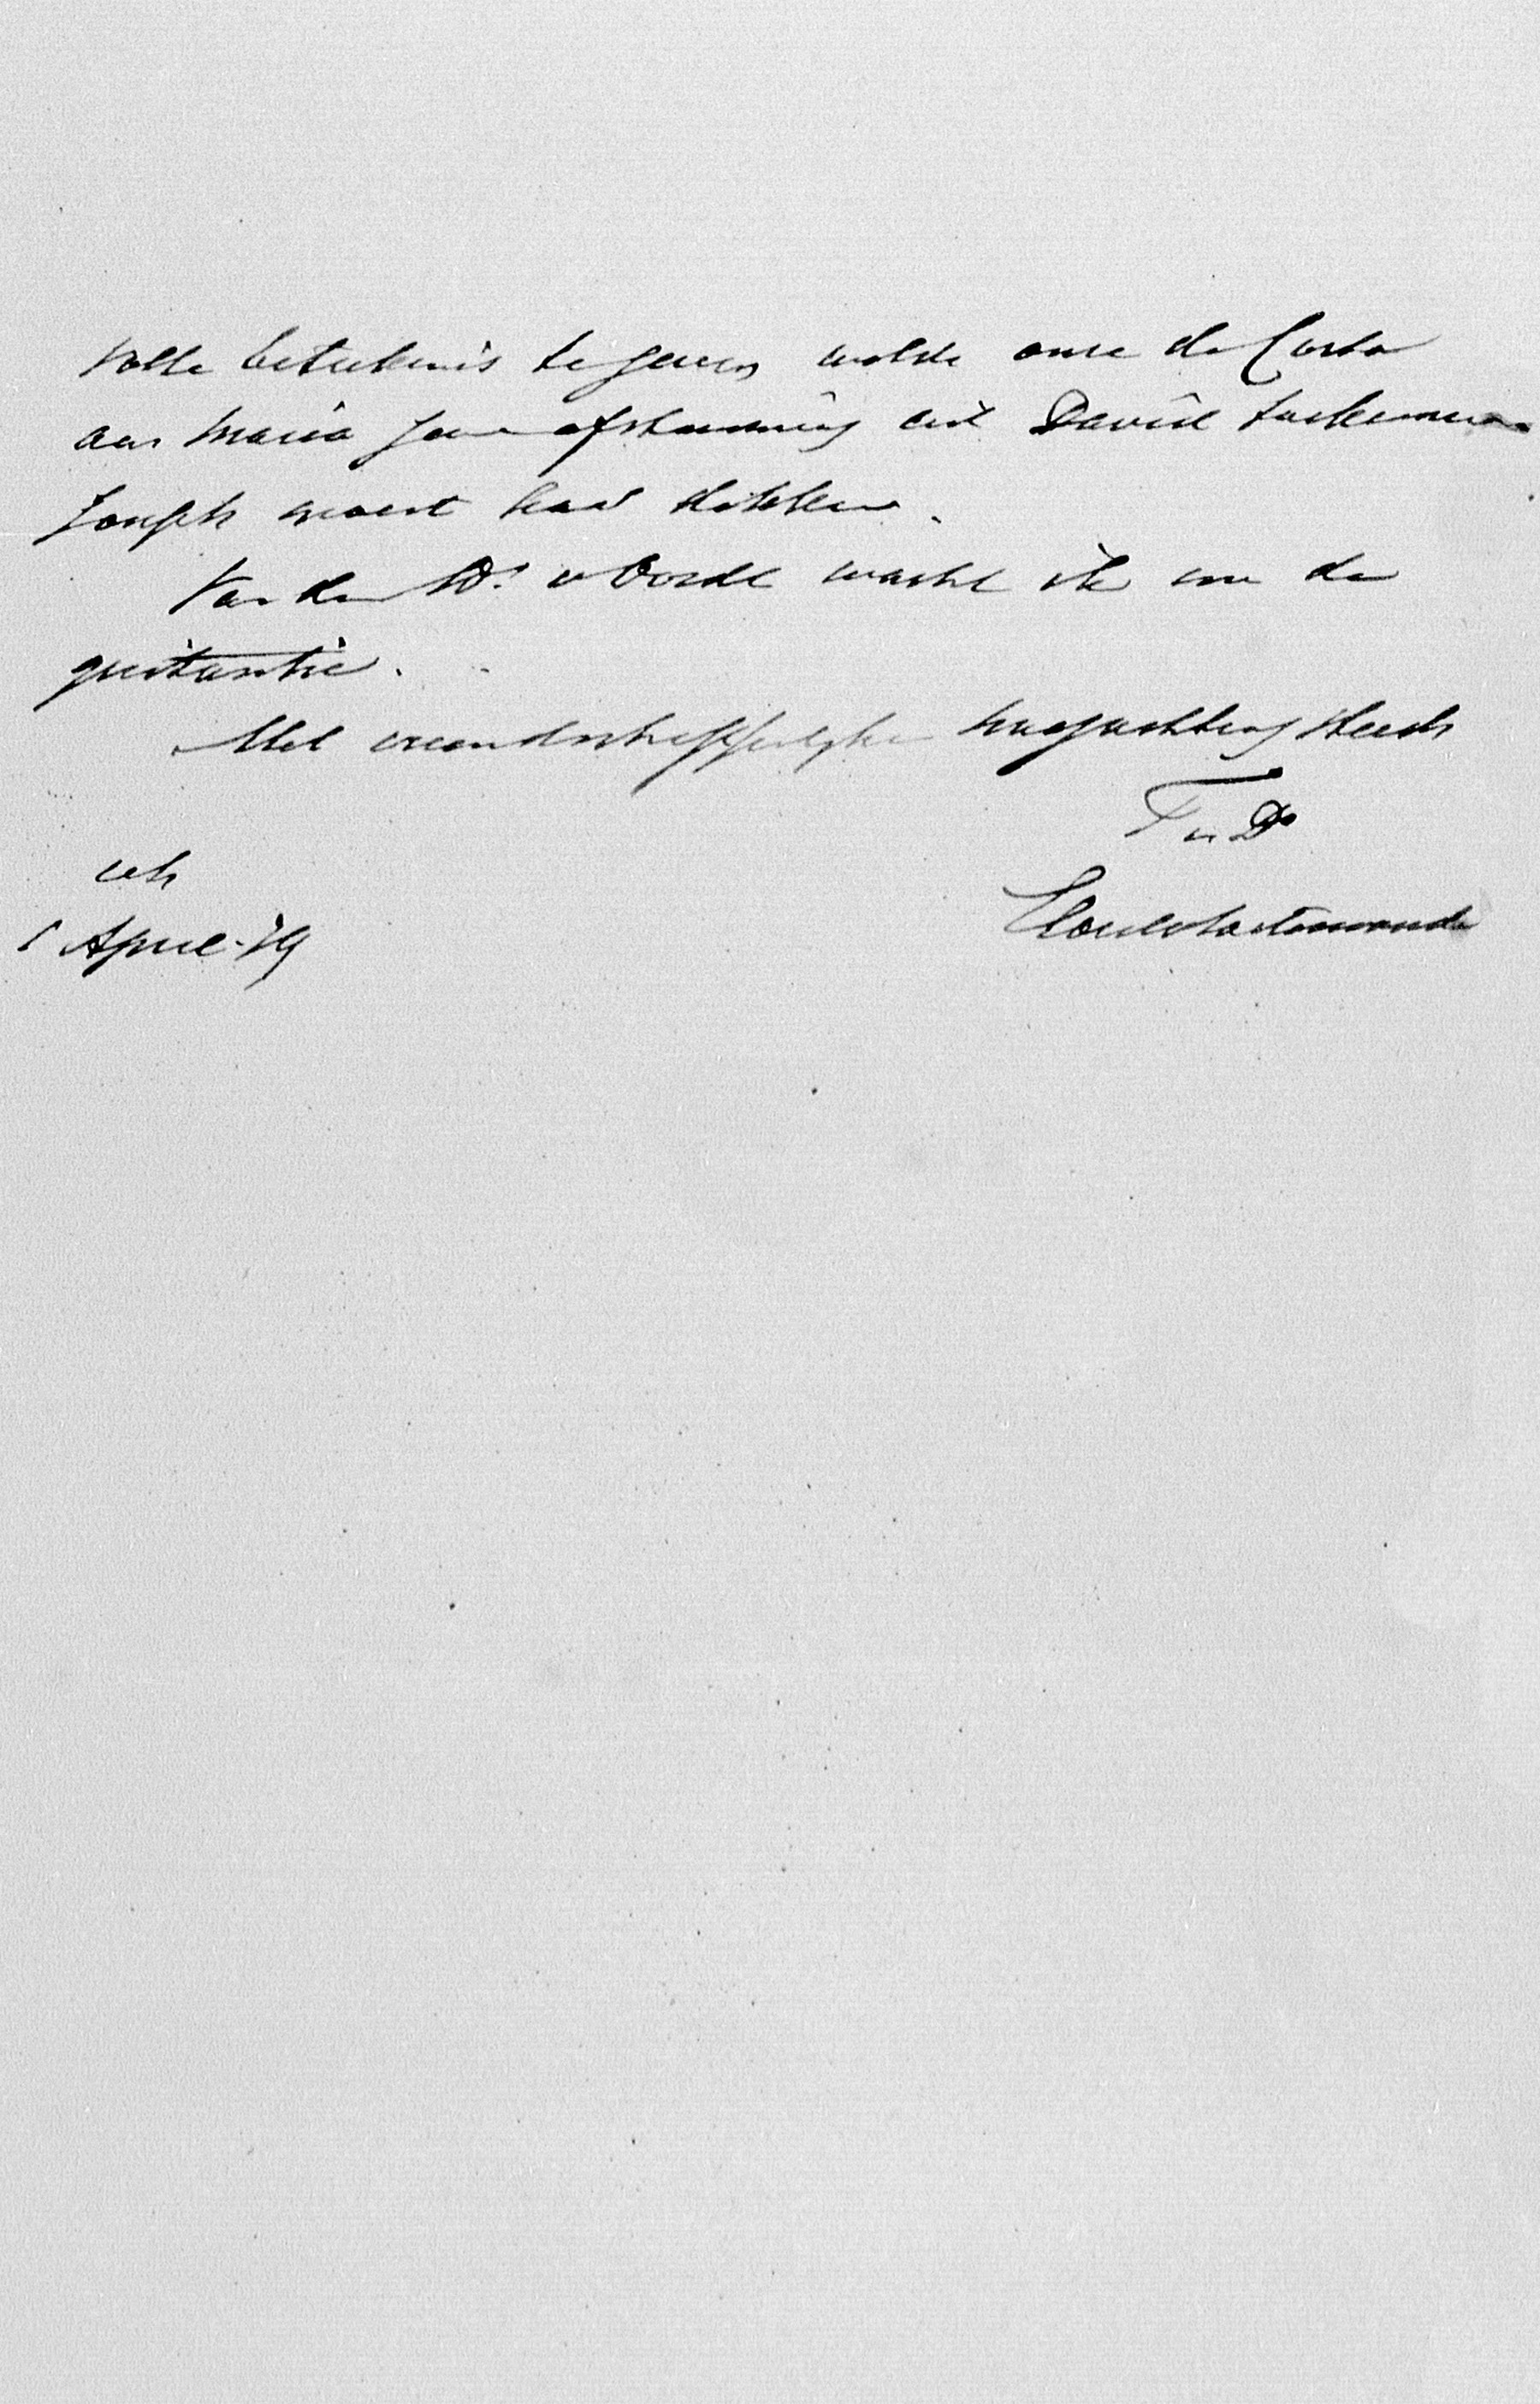 volle beteekenis te geven wilde onze da Costa
aan Maria geen afstamming uit David toekennen
Joseph moest haar dekken.
Van den Hr. v Oordt wacht ik nu de
quitantie.
Met vriendschappelijke hoogachting steeds
T. a. Dº
Uw
April '79